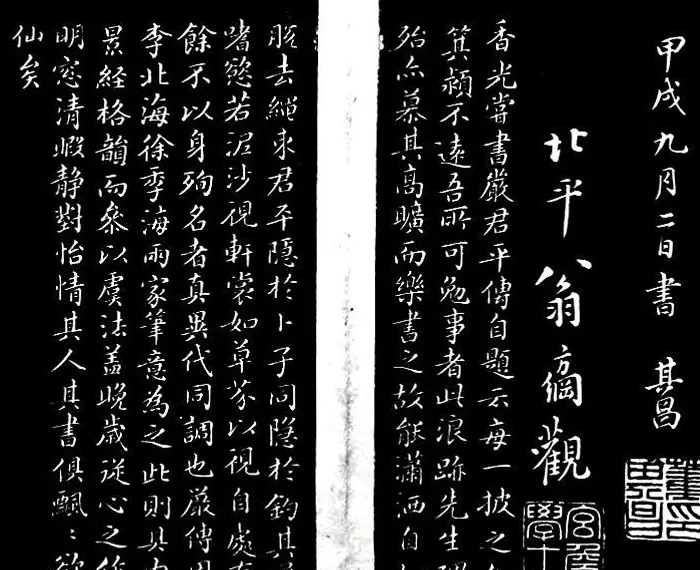 甲戌九月二日書 其昌
北平翁方綱觀
香光嘗書嚴君平傳自題云每一披之
箕潁不遠吾所可勉事者此浪跡先生
殆亦慕其高曠而樂書之故能瀟洒自
脫去繩束君平隱於卜子同隱於釣其
嗜慾若泥沙視軒裳如草芥以視自處
餘不以身殉名者真異代同調也嚴傳
李北海徐季海兩家筆意為之此則具
景経格韻而參以虞法蓋晚歲從心之
明窓清暇靜對怡情其人其書俱飄〻欲
仙矣